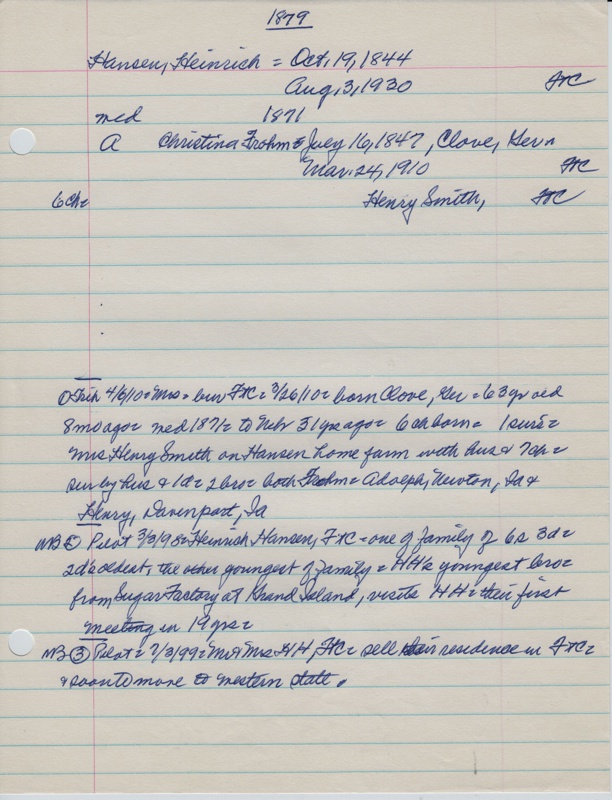 1879
Hansen, Heinrich = Oct, 19, 1844
Aug, 3, 1920 FtC
med 1871
A Christina Frohm = July 16, 1847, Clove, Ger
Mar. 24, 1910 FtC
6 ch = Henry Smith, FtC
① Trib 4/6/10 = Mrs = bur FtC = 3/26/10 = born Clove, Ger = 63 yr old
8 mo ago = med 1871 = to Nebr 31 yrs ago = 6 ch born = 1 surv =
Mrs Henry Smith on Hansen home farm with hus & 7 ch =
sur by hus & 1d = 2 bro = both Frohm = Adolph, Newton, Ia &
Henry, Davenport, Ia
NB ② Pilot 3/3/98 = Heinrich Hansen, FtC = one of family of 6s 3d =
2d oldest, the other youngest of family = HH's youngest bro =
from Sugar Factory at Grand Island, visits HH = their first
meeting in 19 yrs =
NB ③ Pilot = 7/3/99 = Mr & Mrs HH, FtC = sell their residence in FtC =
& soon to move to western state.